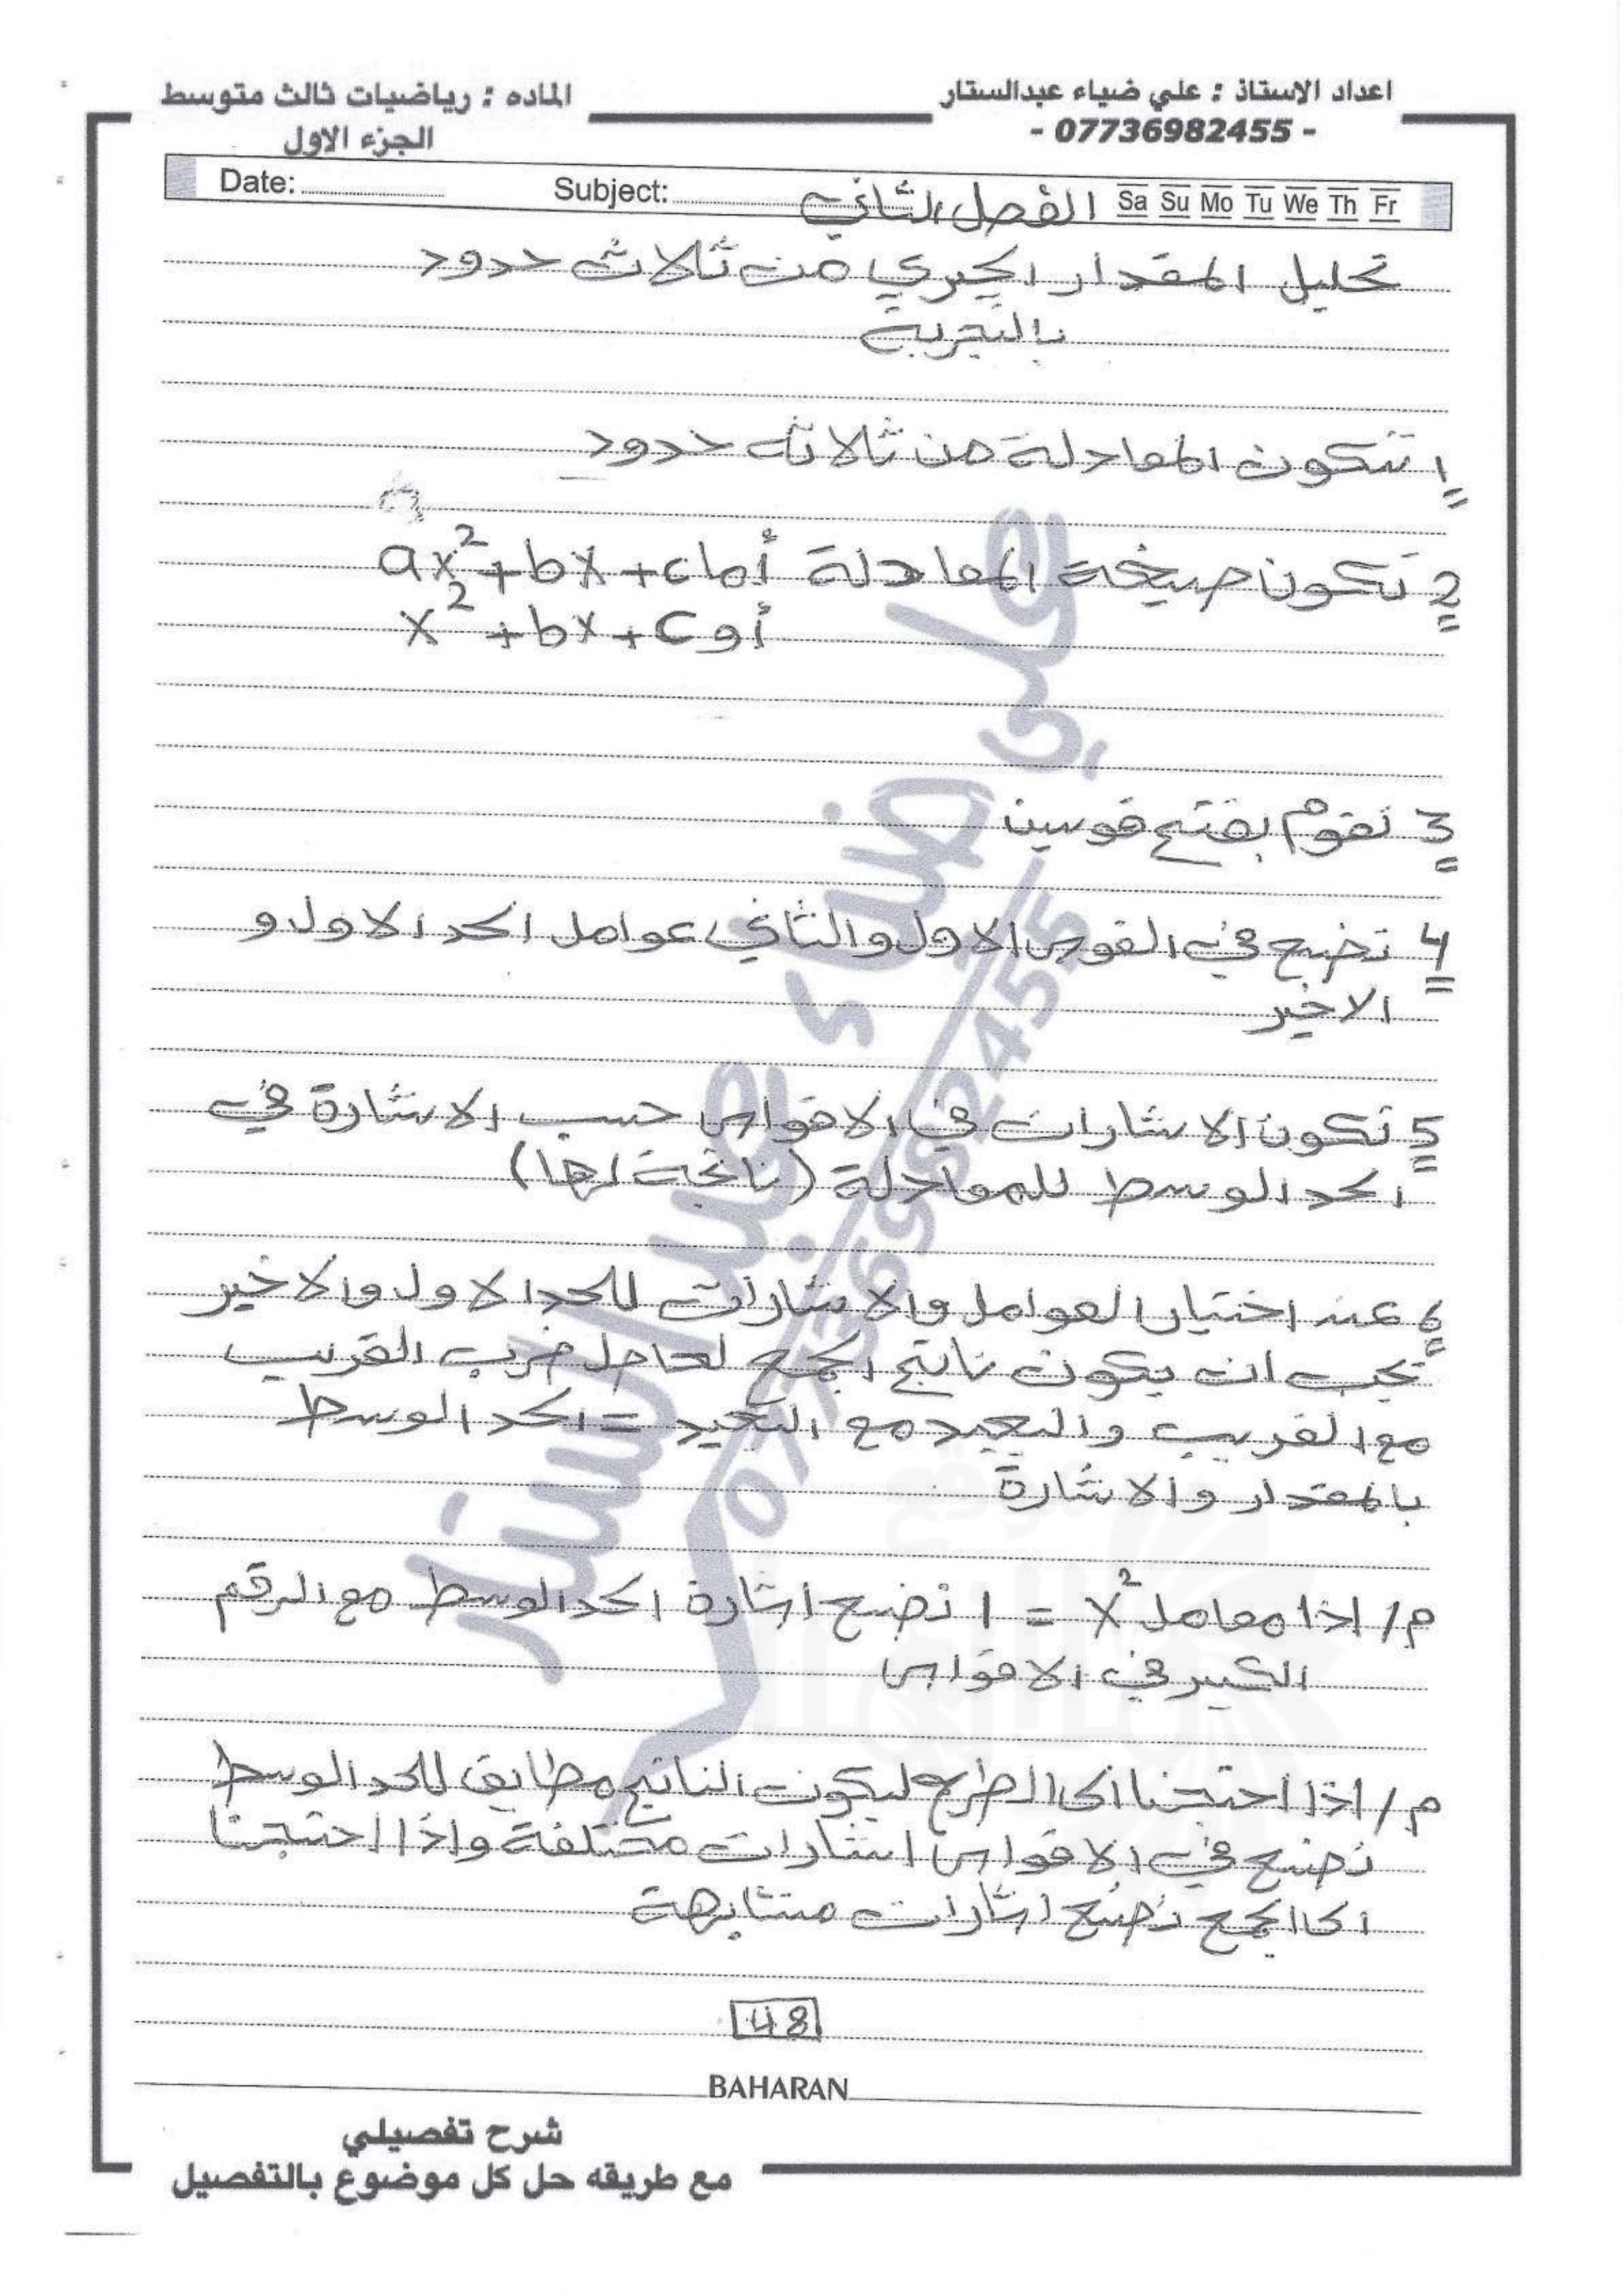 اعداد الاستاذ : علي ضياء عبدالستار
- 07736982455 -
الماده : رياضيات ثالث متوسط
الجزء الاول
Date: Subject: الفصل الثاني Sa Su Mo Tu We Th Fr
تحليل المقدار الجبري من ثلاث حدود
بالتجربة
1 تتكون المعادلة من ثلاثة حدود
2 تكون صيغة المعادلة أما ax²+bx+c
أو x²+bx+c
3 نقوم بفتح قوسين
4 نضع في القوس الاول والثاني عوامل الحد الاول و
الاخير
5 تكون الاشارات في الاقواس حسب الاشارة في
الحد الوسط للمعادلة (ناتجة لها)
6 عند اختيار العوامل والاشارات للحد الاول والاخير
يجب ان يكون ناتج الجمع لحاصل ضرب القريب
مع القريب والبعيد مع البعيد = الحد الوسط
بالمقدار والاشارة
م/ اذا معامل x² = 1 نضع اشارة الحد الوسط مع الرقم
الكبير في الاقواس
م/ اذا احتجنا الى الطرح ليكون الناتج مطابق للحد الوسط
نضع في الاقواس اشارات مختلفة واذا احتجنا
الى الجمع نضع اشارات متشابهة
48
BAHARAN
شرح تفصيلي
مع طريقه حل كل موضوع بالتفصيل
علي ضياء عبدالستار
07736982455